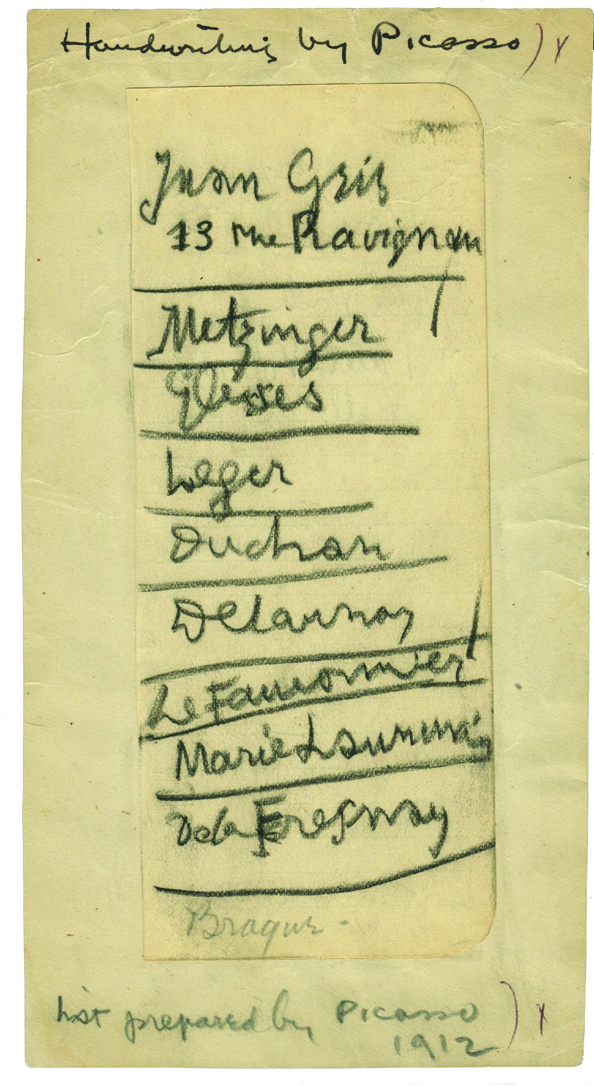 Handwriting by Picasso) x
Juan Gris
13 rue Ravignan
Metzinger
Gleizes
Leger
Duchan
Delaunay
Le Fauconnier
Marie Laurencin
De la Fresnay
Braque -
List prepared by Picasso ) x
1912